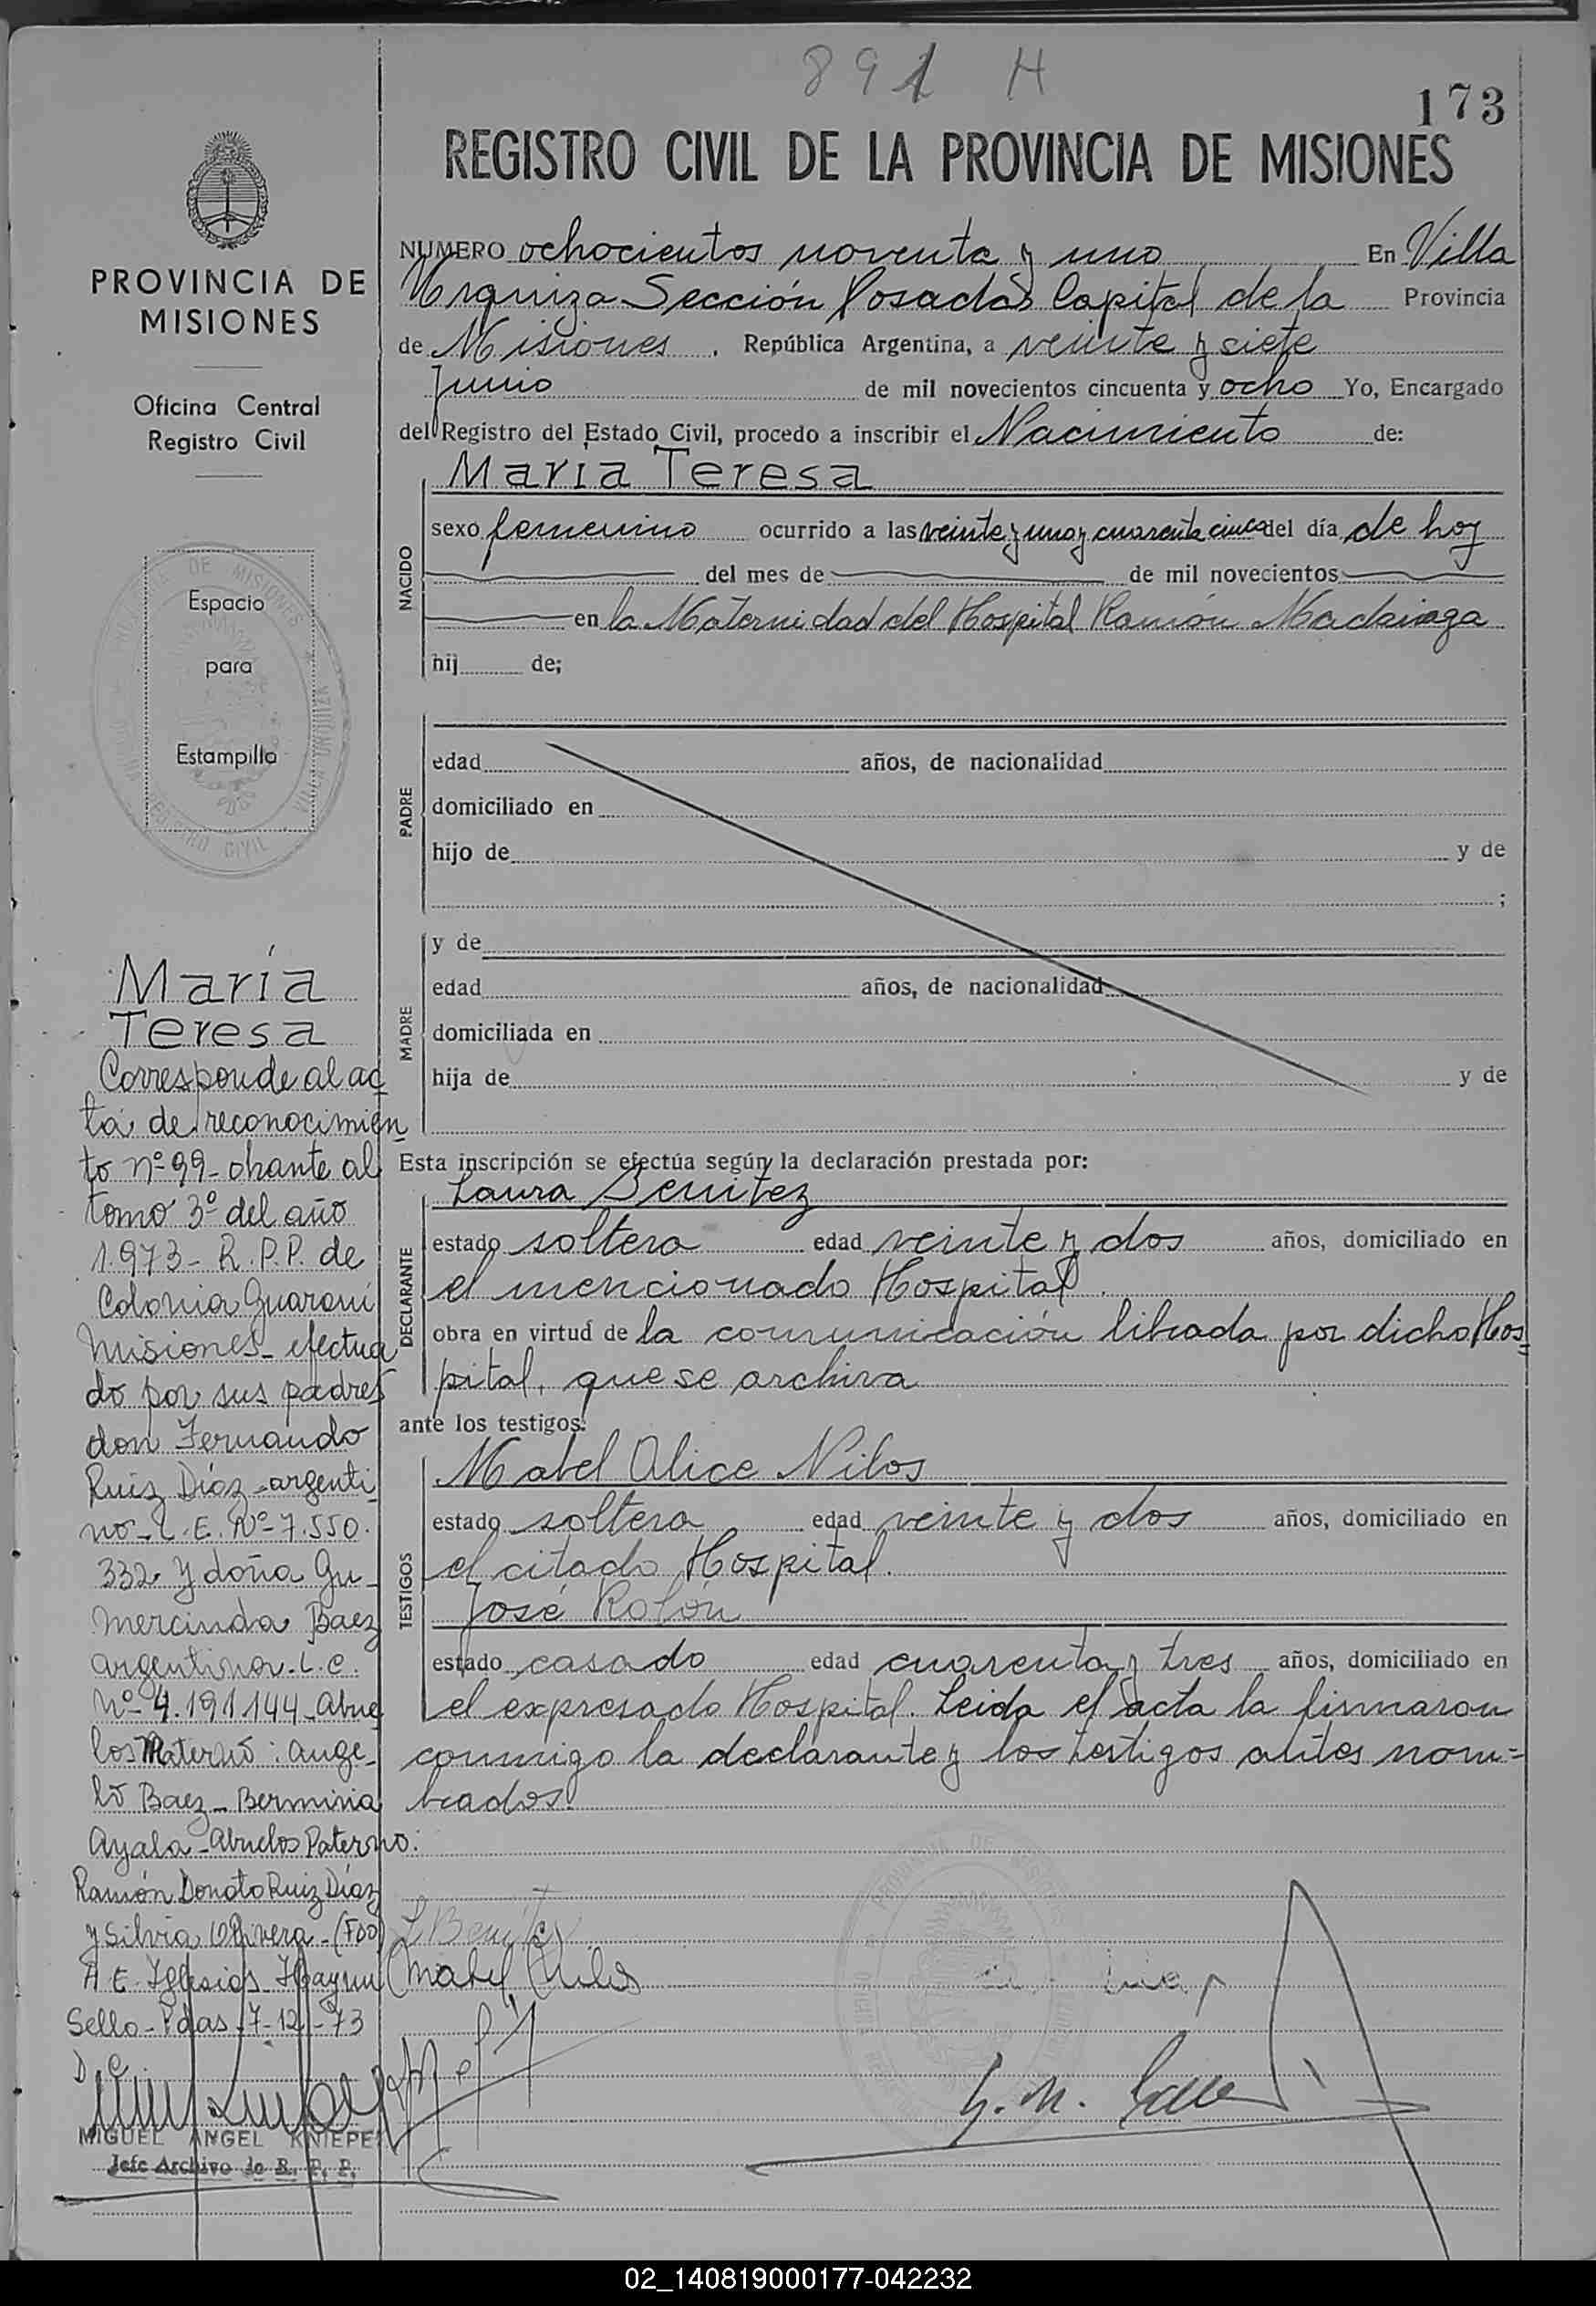 891 H
173
REGISTRO CIVIL DE LA PROVINCIA DE MISIONES
PROVINCIA DE
MISIONES
Oficina Central
Registro Civil
Espacio
para
Estampilla
María
Teresa
Corresponde al ac
ta de reconocimien
to nº 99 - obrante al
tomo 3º del año
1.973 - R.P.P. de
Colonia Guaraní
Misiones - efectua
do por sus padres
don Fernando
Ruiz Díaz - argenti
no - L.E. Nº 7.550.
332 y doña Gu-
mercinda Baez
argentina - L.C.
Nº 4.191144 - Abue
los Materno: Ange-
lo Baez - Berminia
Ayala - Abuelos Paterno:
Ramón Donato Ruiz Díaz
y Silvia Olivera - (FDO)
A E. Iglesias
Sello - Pdas - 7-12-73
MIGUEL ANGEL KNIEPE
Jefe Archivo de R. P. P.
NUMERO ochocientos noventa y uno En Villa
Urquiza Sección Posadas Capital de la Provincia
de Misiones . República Argentina, a veinte y siete
Junio de mil novecientos cincuenta y ocho Yo, Encargado
del Registro del Estado Civil, procedo a inscribir el Nacimiento de:
María Teresa
NACIDO
sexo femenino ocurrido a las veinte y uno y cuarenta cinco del día de hoy
del mes de de mil novecientos
en la Maternidad del Hospital Ramón Madariaga
hij de;
PADRE
edad años, de nacionalidad
domiciliado en
hijo de y de
;
MADRE
y de
edad años, de nacionalidad
domiciliada en
hija de y de
Esta inscripción se efectúa según la declaración prestada por:
Laura Benitez
DECLARANTE
estado soltera edad veinte y dos años, domiciliado en
el mencionado Hospital.
obra en virtud de la comunicación librada por dicho Hos
pital, que se archiva
ante los testigos:
Mabel Alice Nilos
TESTIGOS
estado soltera edad veinte y dos años, domiciliado en
el citado Hospital.
José Rolón
estado casado edad cuarenta y tres años, domiciliado en
el expresado Hospital. Leida el acta la firmaron
conmigo la declarante y los testigos antes nom=
brados.
L Benitez
02_140819000177-042232